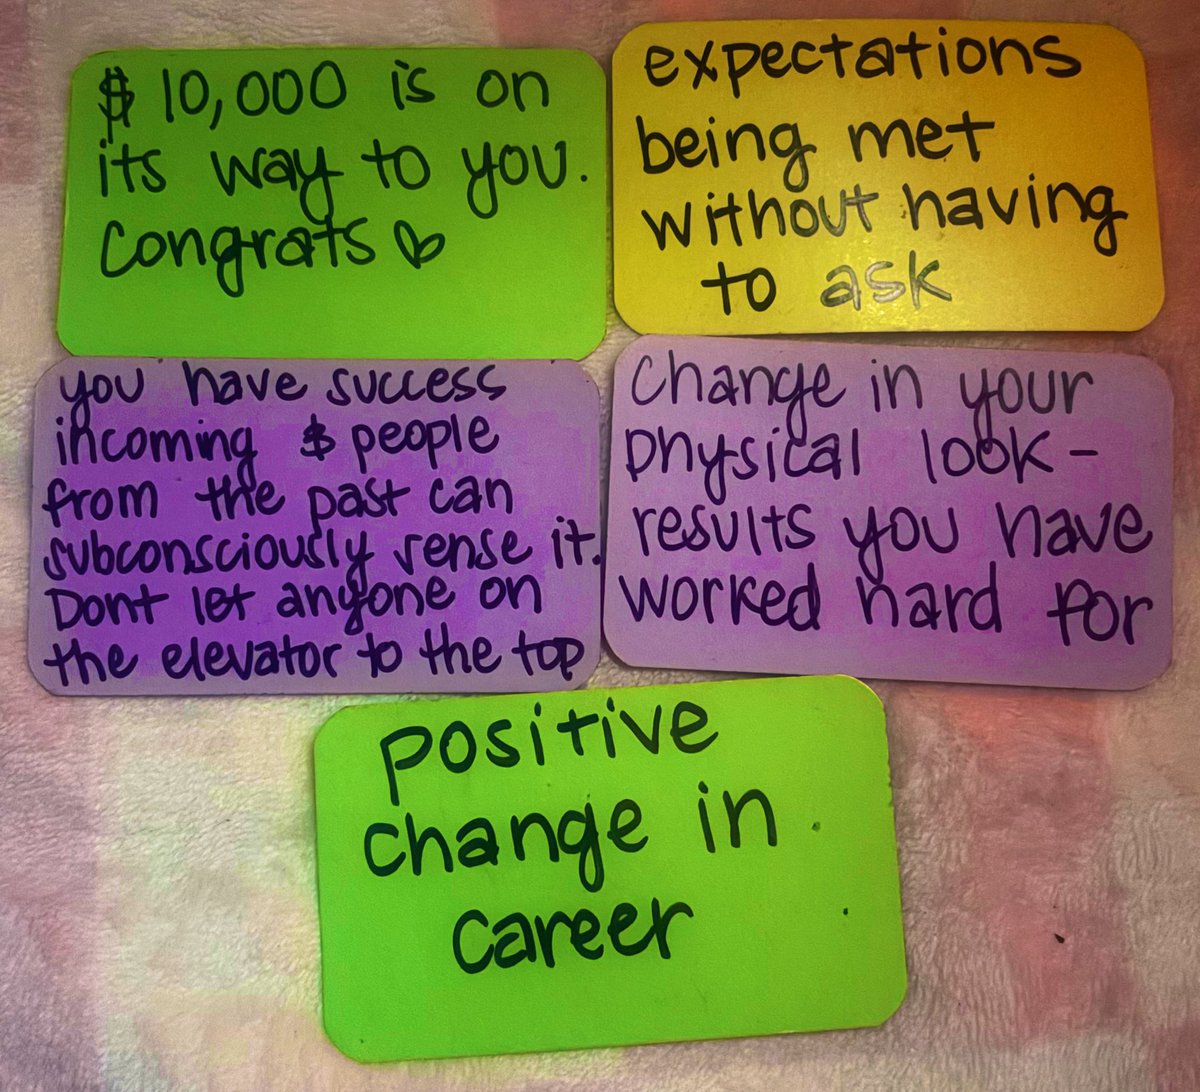 $ 10,000 is on
its way to you.
Congrats ♡
expectations
being met
without having
to ask
you have success
incoming $ people
from the past can
subconsciously sense it.
Dont let anyone on
the elevator to the top
Change in your
physical look-
results you have
worked hard for
positive
change in
career